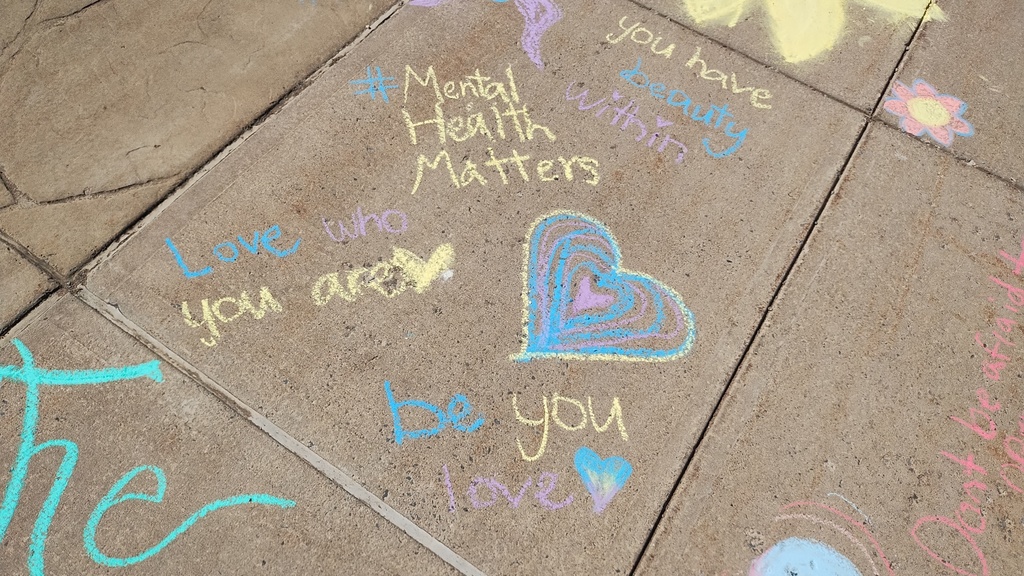 you have
beauty
within
#Mental
Health
Matters
Love who
you are
be you
love
the
Don't be afraid t